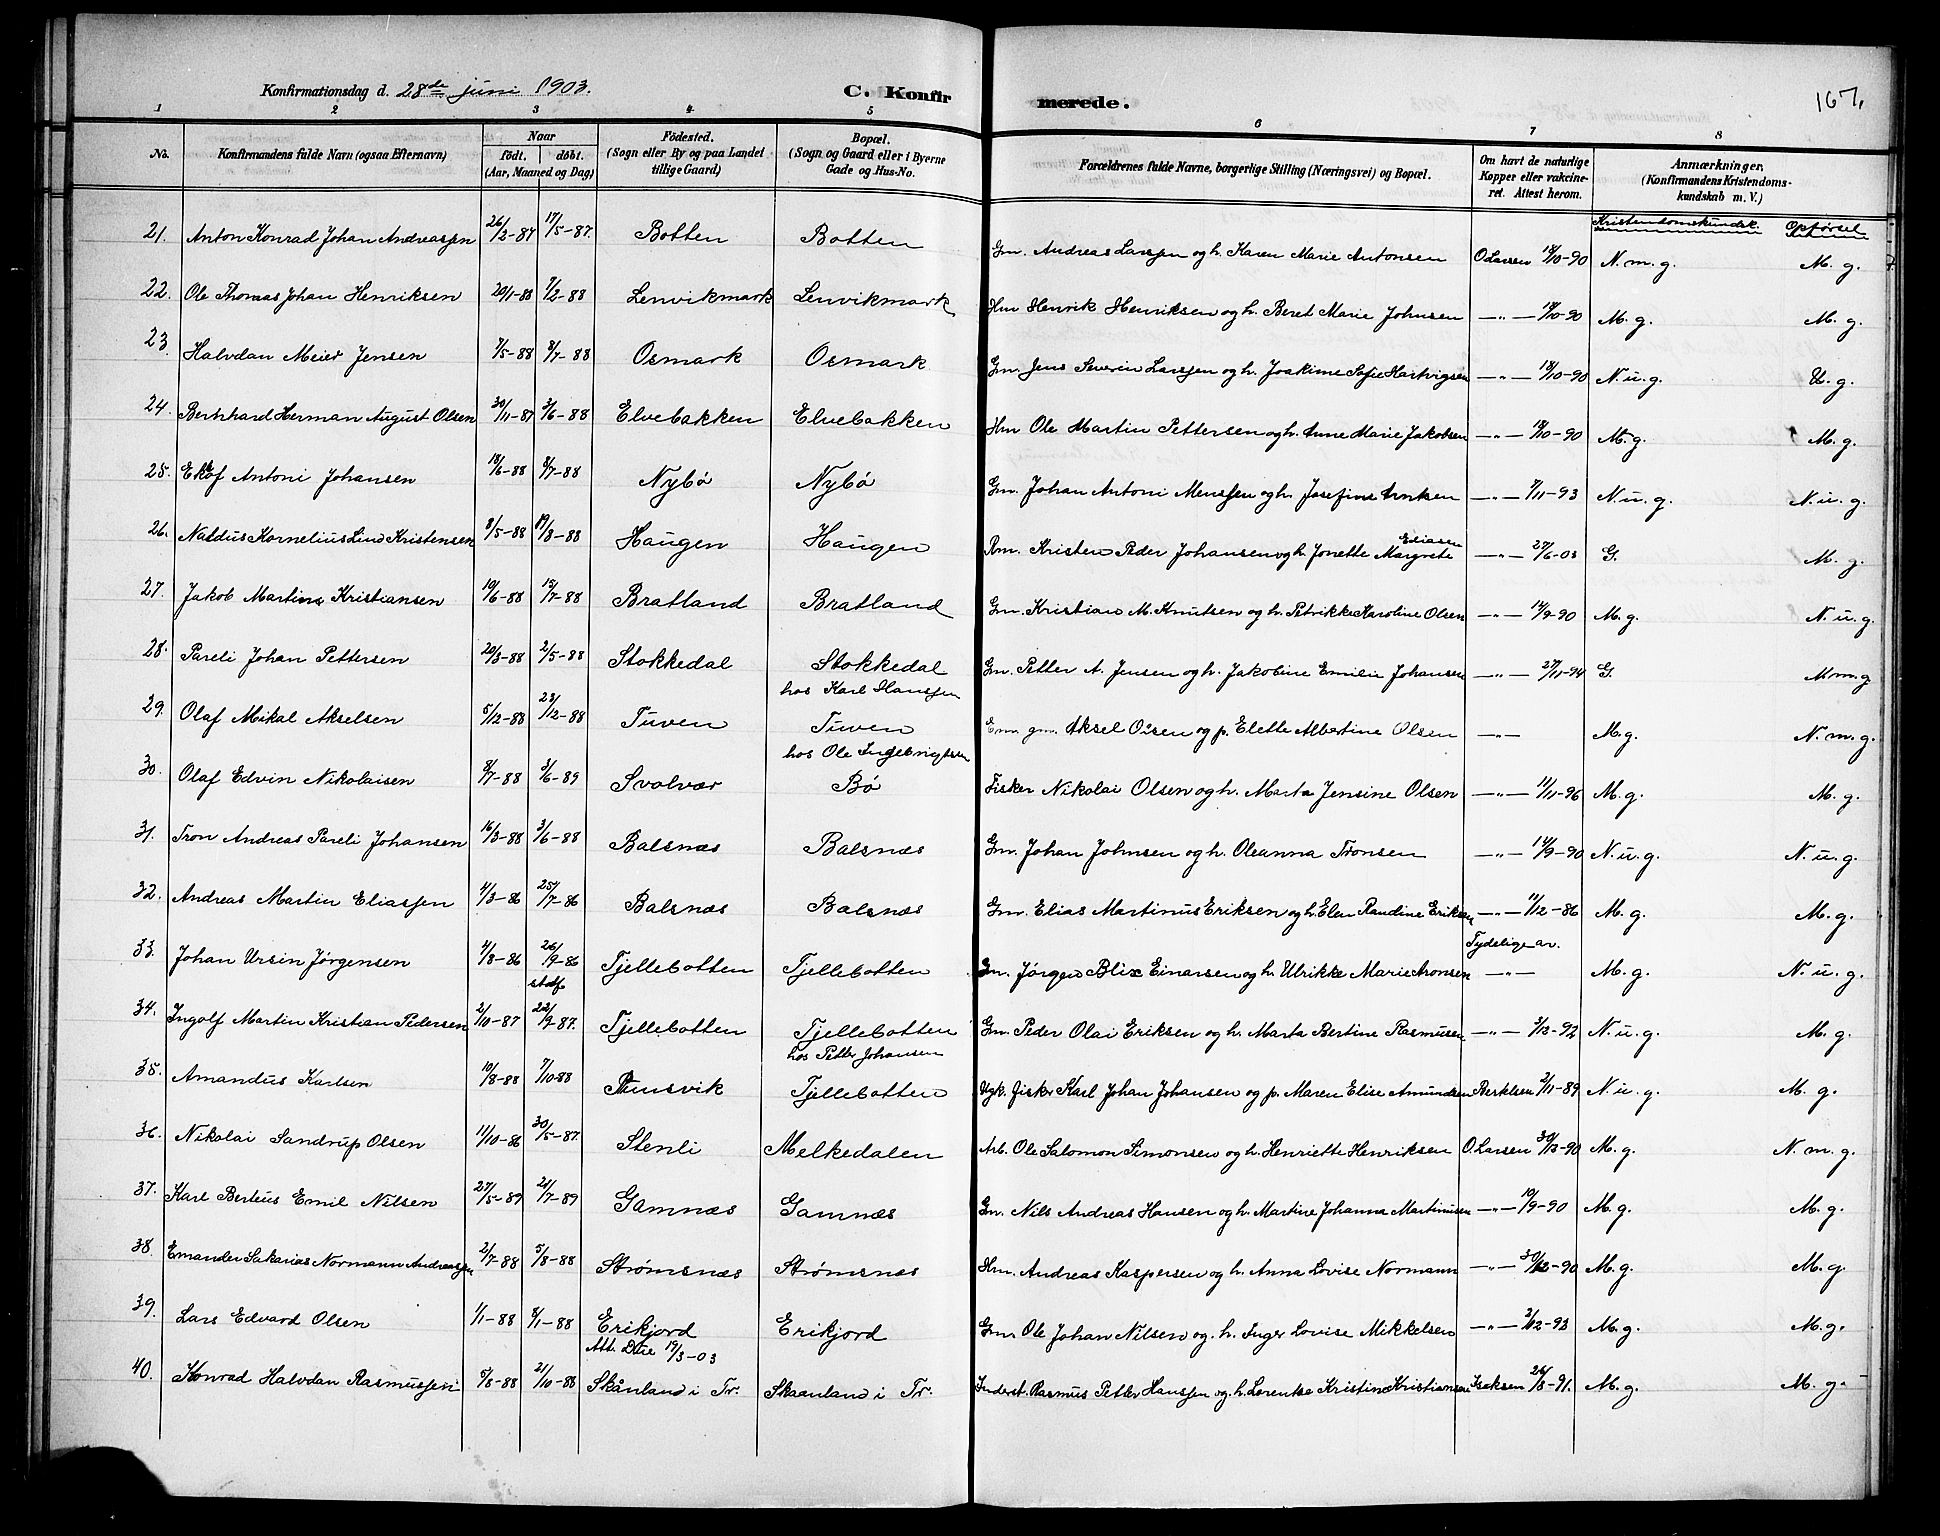 Konfirmationsdag d. 28de juni 1903.
C. Konfirmerede.
167.
1 2 3 4 5 6 7 8
No. Konfirmandens fulde Navn (ogsaa Efternavn) Naar født. døbt. (Aar, Maaned og Dag) Fødested. (Sogn eller By og paa Landet tillige Gaard) Bopæl. (Sogn og Gaard eller i Byerne Gade og Hus-No. Forældrenes fulde Navne, borgerlige Stilling (Næringsvei) og Bopæl. Om havt de naturlige Kopper eller vakcineret. Attest herom. Anmærkninger. (Konfirmandens Kristendomskundskab m. V.)
Kristendomskundsk. Opførsel
21. Anton Konrad Johan Andreassen 26/2-87 17/5-87. Botten Botten Gm. Andreas Larssen og h. Karen Marie Antonsen O Larsen 18/10-90 N. m. g. M. g.
22. Ole Thomas Johan Henriksen 20/1-88 7/2-88 Lenvikmark Lenvikmark Hm Henrik Henriksen og h. Beret Marie Johnsen —"— 18/10-90 M. g. M. g.
23. Halvdan Meier Jensen 7/5-88 8/7-88 Osmark Osmark Gm. Jens Severin Larssen og h. Joakime Sofie Hartvigsen —"— 18/10-90 N. u. g. U. g.
24. Bernhard Herman August Olsen 30/11-87 3/6-88 Elvebakken Elvebakken Hm Ole Martin Pettersen og h. Anne Marie Jakobsen —"— 18/10-90 M. g. M. g.
25. Antoni Johansen 18/6-88 8/7-88 Nybø Nybø Gm. Johan Antoni Menssen og h. Josefine Arntsen —"— 7/11-93 N. u. g. N. u. g.
26. Naldus Kornelius Lind Kristensen 8/5-88 19/8-88 Haugen Haugen Rm. Kristen Peder Johansen og h. Jonette Margrete Eliassen —"— 27/6-03 G. M. g.
27. Jakob Martin Kristiansen 10/6-88 15/7-88 Bratland Bratland Gm. Kristian M. Knutsen og h. Petrikke Karoline Olsen —"— 14/9-90 M. g. N. u. g.
28. Pareli Johan Pettersen 20/3-88 2/5-88 Stokkedal Stokkedal Gm. Petter A. Jensen og h. Jakobine Emilie Johansen —"— 27/11-94 G. M m. g.
hos Karl Hanssen
29. Olaf Mikal Akselsen 5/12-88 23/12-88 Tuven Tuven Em. gm. Aksel Olsen og p. Elette Albertine Olsen —"— M. g. N. m. g.
hos Ole Ingebrigtsen
30. Olaf Edvin Nikolaisen 8/7-88 3/6-89 Svolvær Bø Fisker Nikolai Olsen og h. Marta Jensine Olsen —"— 11/11-96 M. g. M. g.
31. Tron Andreas Pareli Johansen 16/3-88 3/6-88 Balsnæs Balsnæs Gm. Johan Johnsen og h. Oleanna Tronsen —"— 14/9-90 N. u. g. N. u. g.
32. Andreas Martin Eliassen 4/3-86 25/7-86 Balsnæs Balsnæs Gm. Elias Martinus Eriksen og h. Elen Raudine Eriksen —"— 11/12-86 M. g. M. g.
33. Johan Ursin Jørgensen 4/8-86 26/9-86 Tjellebotten Tjellebotten Gm. Jørgen Blix Einarsen og h. Ulrikke Marie Aronsen Tydelige ar. —"— M. g. N. u. g.
stadf
34. Ingolf Martin Kristian Pedersen 2/10-87 22/9-87. Tjellebotten Tjellebotten Gm. Peder Olai Eriksen og h. Marta Bertine Rasmusen —"— 3/13-92 N. u. g. M. g.
hos Petter Johansen
35. Amandus Karlsen 10/8-88 7/10-88 Tjellebotten Ugk. fisker Karl Johan Johansen og p. Maren Elise Amundsen Bertelsen 2/11-89 N. u. g. M. g.
36. Nikolai Sandrup Olsen 11/10-86 30/5-87. Stenli Melkedalen Arb. Ole Salomon Simonsen og h. Henriette Henriksen O. Larsen 30/13-90 M. g. N. m. g.
37. Karl Berteus Emil Nilsen 27/5-89 21/7-89 Gamnæs Gamnæs Gm. Nils Andreas Hansen og h. Martine Johanna Martinusen —"— 10/9-90 M. g. M. g.
38. Emander Sakarias Normann Andreassen 2/7-88 5/8-88 Strømsnæs Strømsnæs Hm. Andreas Kaspersen og h. Anna Lovise Normann —"— 30/12-90 M. g. M. g.
39. Lars Edvard Olsen 1/1-88 8/1-88 Erikjord Erikjord Gm. Ole Johan Nilsen og h. Inger Lovise Mikkelsen —"— 2/12-93 M. g. M. g.
Att. 17/3-03
40. Konrad Halvdan Rasmussen 5/8-88 21/10-88 Skånland i Tr. Skaanland i Tr. Inderst. Rasmus Petter Hanssen og h. Lorentse Kristine Kristiansen Isaksen 26/8-91. M. g. M. g.